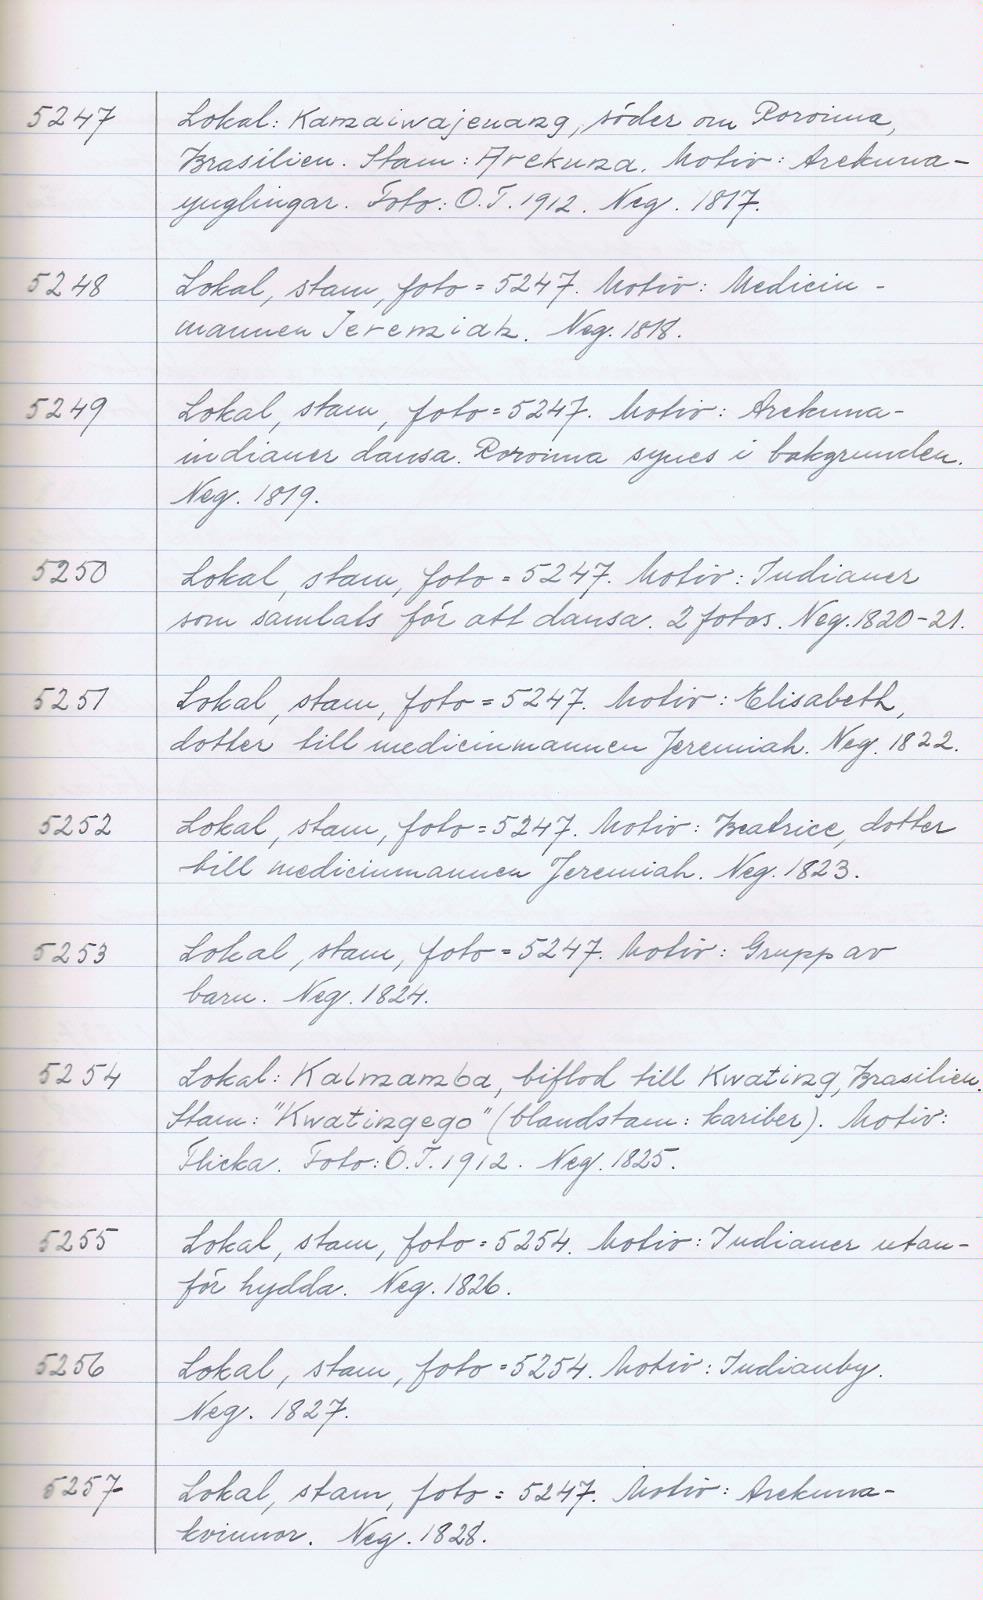 5247 Lokal: Kamaiwajenang, söder om Roroima,
Brasilien. Stam: Arekuna. Motiv: Arekuna-
ynglingar. Foto: O.T. 1912. Neg. 1817.
5248 Lokal, stam, foto = 5247. Motiv: Medicin-
mannen Jeremiah. Neg. 1818.
5249 Lokal, stam, foto = 5247. Motiv: Arekuna-
indianer dansa. Roroima synes i bakgrunden.
Neg. 1819.
5250 Lokal, stam, foto = 5247. Motiv: Indianer
som samlats för att dansa. 2 fotos. Neg. 1820-21.
5251 Lokal, stam, foto = 5247. Motiv: Elisabeth,
dotter till medicinmannen Jeremiah. Neg. 1822.
5252 Lokal, stam, foto = 5247. Motiv: Beatrice, dotter
till medicinmannen Jeremiah. Neg. 1823.
5253 Lokal, stam, foto = 5247. Motiv: Grupp av
barn. Neg. 1824.
5254 Lokal: Kalmamba, biflod till Kwating, Brasilien.
Stam: "Kwatingego" (blandstam: kariber). Motiv:
Flicka. Foto: O.T. 1912. Neg. 1825.
5255 Lokal, stam, foto = 5254. Motiv: Indianer utan-
för hydda. Neg. 1826.
5256 Lokal, stam, foto = 5254. Motiv: Indianby.
Neg. 1827.
5257 Lokal, stam, foto = 5247. Motiv: Arekuna-
kvinnor. Neg. 1828.